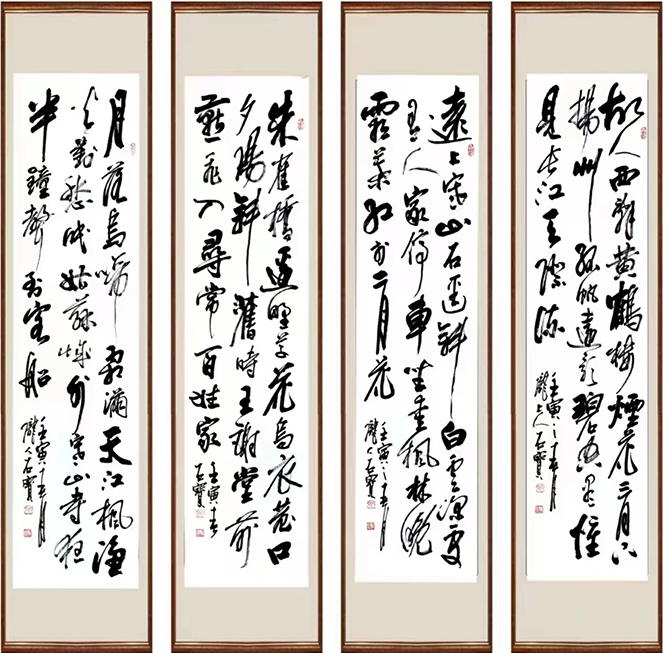 故人西辭黄鶴樓煙花三月下
揚州孤帆遠影碧空盡惟
見長江天際流
壬寅
石寶
遠上寒山石徑斜白雲深處
有人家停車坐愛楓林晚
霜葉紅於二月花
壬寅
石寶
朱雀橋邊野草花烏衣巷口
夕陽斜舊時王謝堂前
燕飛入尋常百姓家
壬寅
石寶
月落烏啼霜滿天江楓漁
火對愁眠姑蘇城外寒山寺夜
半鐘聲到客船
壬寅
石寶